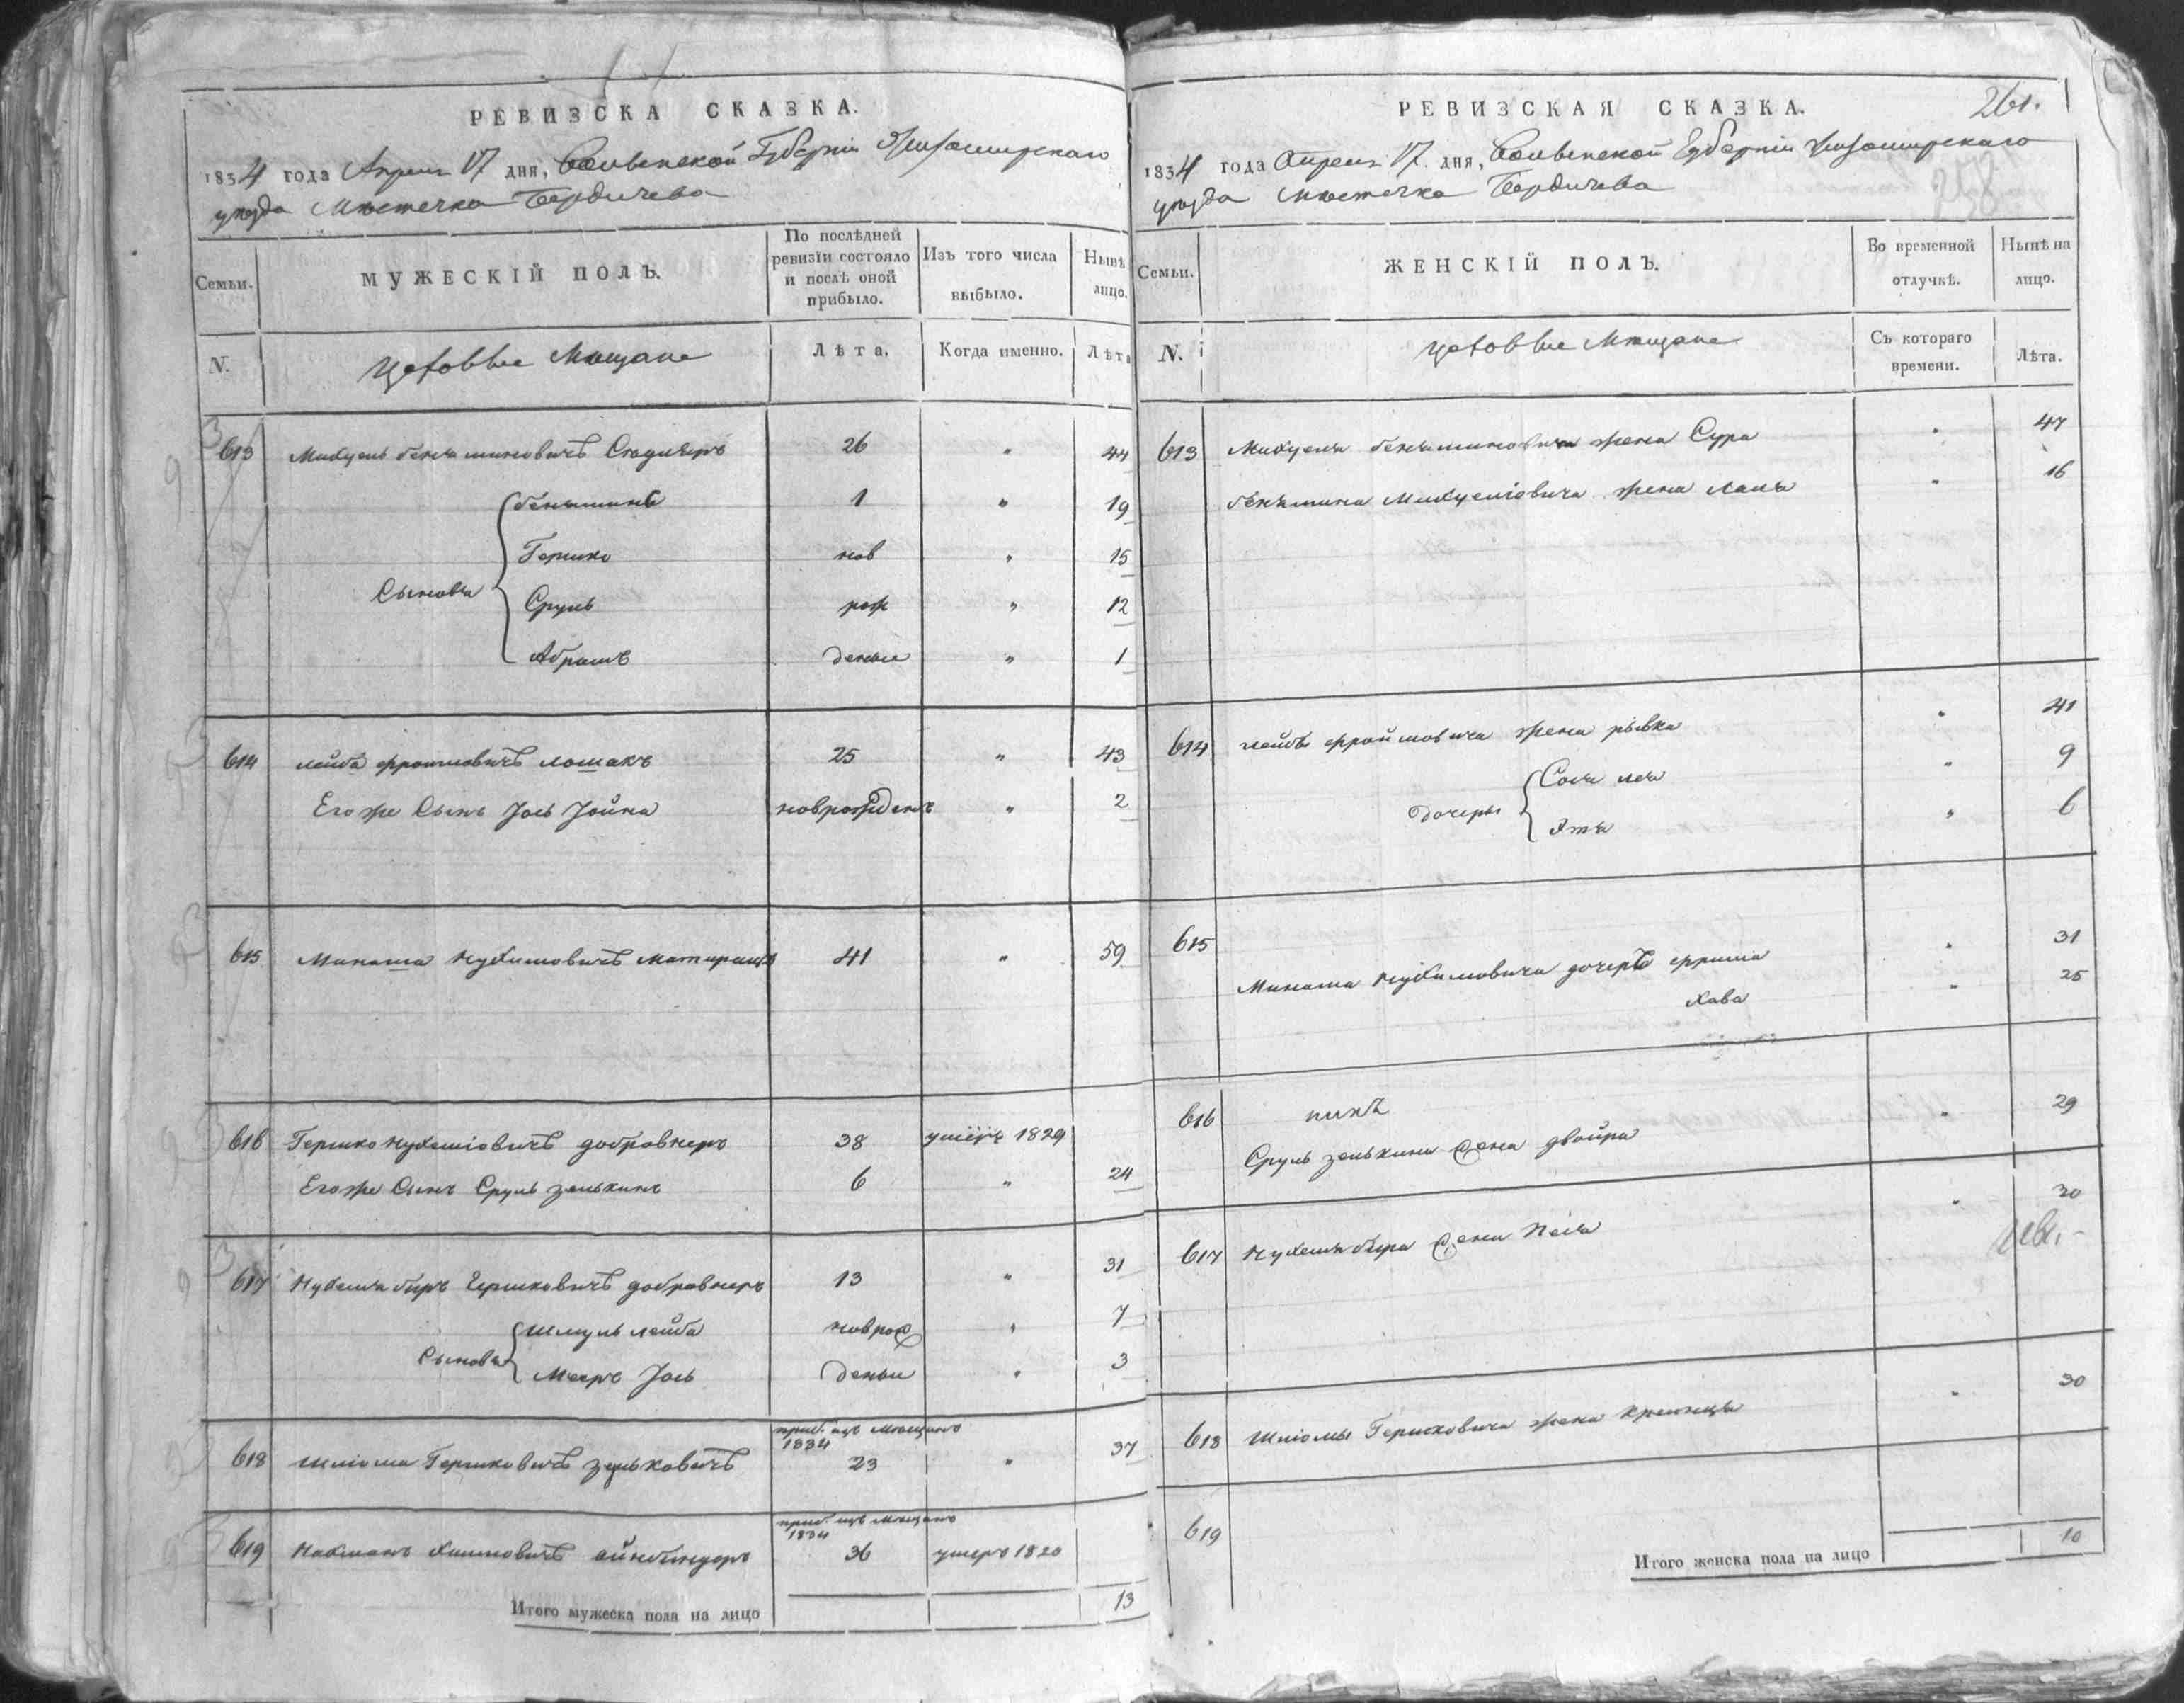 РЕВИЗСКА СКАЗКА.
1834 года Апреля 17 дня, Волынской Губерніи Житомирскаго
уезда Местечка Бердичева
Семьи.
МУЖЕСКІЙ ПОЛЪ.
По послѣдней ревизіи состояло и послѣ оной прибыло.
Изъ того числа выбыло.
Нынѣ лицо.
N.
Цеховые Мещане
Лѣта.
Когда именно.
Лѣта
613 Михуель беньяминовичъ 26 " 44
беньяминъ 1 " 19
Гершко нов " 15
Сыновья
Сруль рож " 12
Абрамъ деные " 1
614 лейба фроимовичъ лошакъ 25 " 43
Его же Сынъ Іось Іойна новрожденъ " 2
615 Манаша Нухимовичъ 41 " 59
616 Гершко Нухемiовичъ добровнеръ 38 умеръ 1829
Его же Сынъ Сруль зелькинъ 6 " 24
617 Нухемъ беръ Гершковичъ добровнеръ 13 " 31
Шмуль лейба новрож " 7
Сыновья
Мееръ Іось деные " 3
приб. изъ Мещанъ
1834
618 Шліома Гершковичъ зельковичъ 23 " 37
приб. изъ Мещанъ
1834
619 Нахманъ Хаимовичъ айнбиндеръ 36 умеръ 1820
Итого мужеска пола на лицо 13
РЕВИЗСКАЯ СКАЗКА. 261.
1834 года Апреля 17. дня, Волынской Губерніи Житомирскаго
уезда Местечка Бердичева
258
Семьи.
ЖЕНСКІЙ ПОЛЪ.
Во временной отлучкѣ.
Нынѣ на лицо.
N.
Цеховые Мещане
Съ котораго времени.
Лѣта.
613 Михуеля беньяминовича жена Сура " 47
беньямина Михуелiовича жена Хаия " 16
614 лейбы фроймовича жена рывка " 41
Сося лея " 9
дочеры
Этя " 6
615 " 31
Манаша Нухимовича дочеръ " 25
Хава
616 " 29
Сруль зелькина жена двойра
617 Нухемъ бера жена Песя " 30
618 Шліомы Гершковича жена Крейнця " 30
619
Итого женска пола на лицо 10